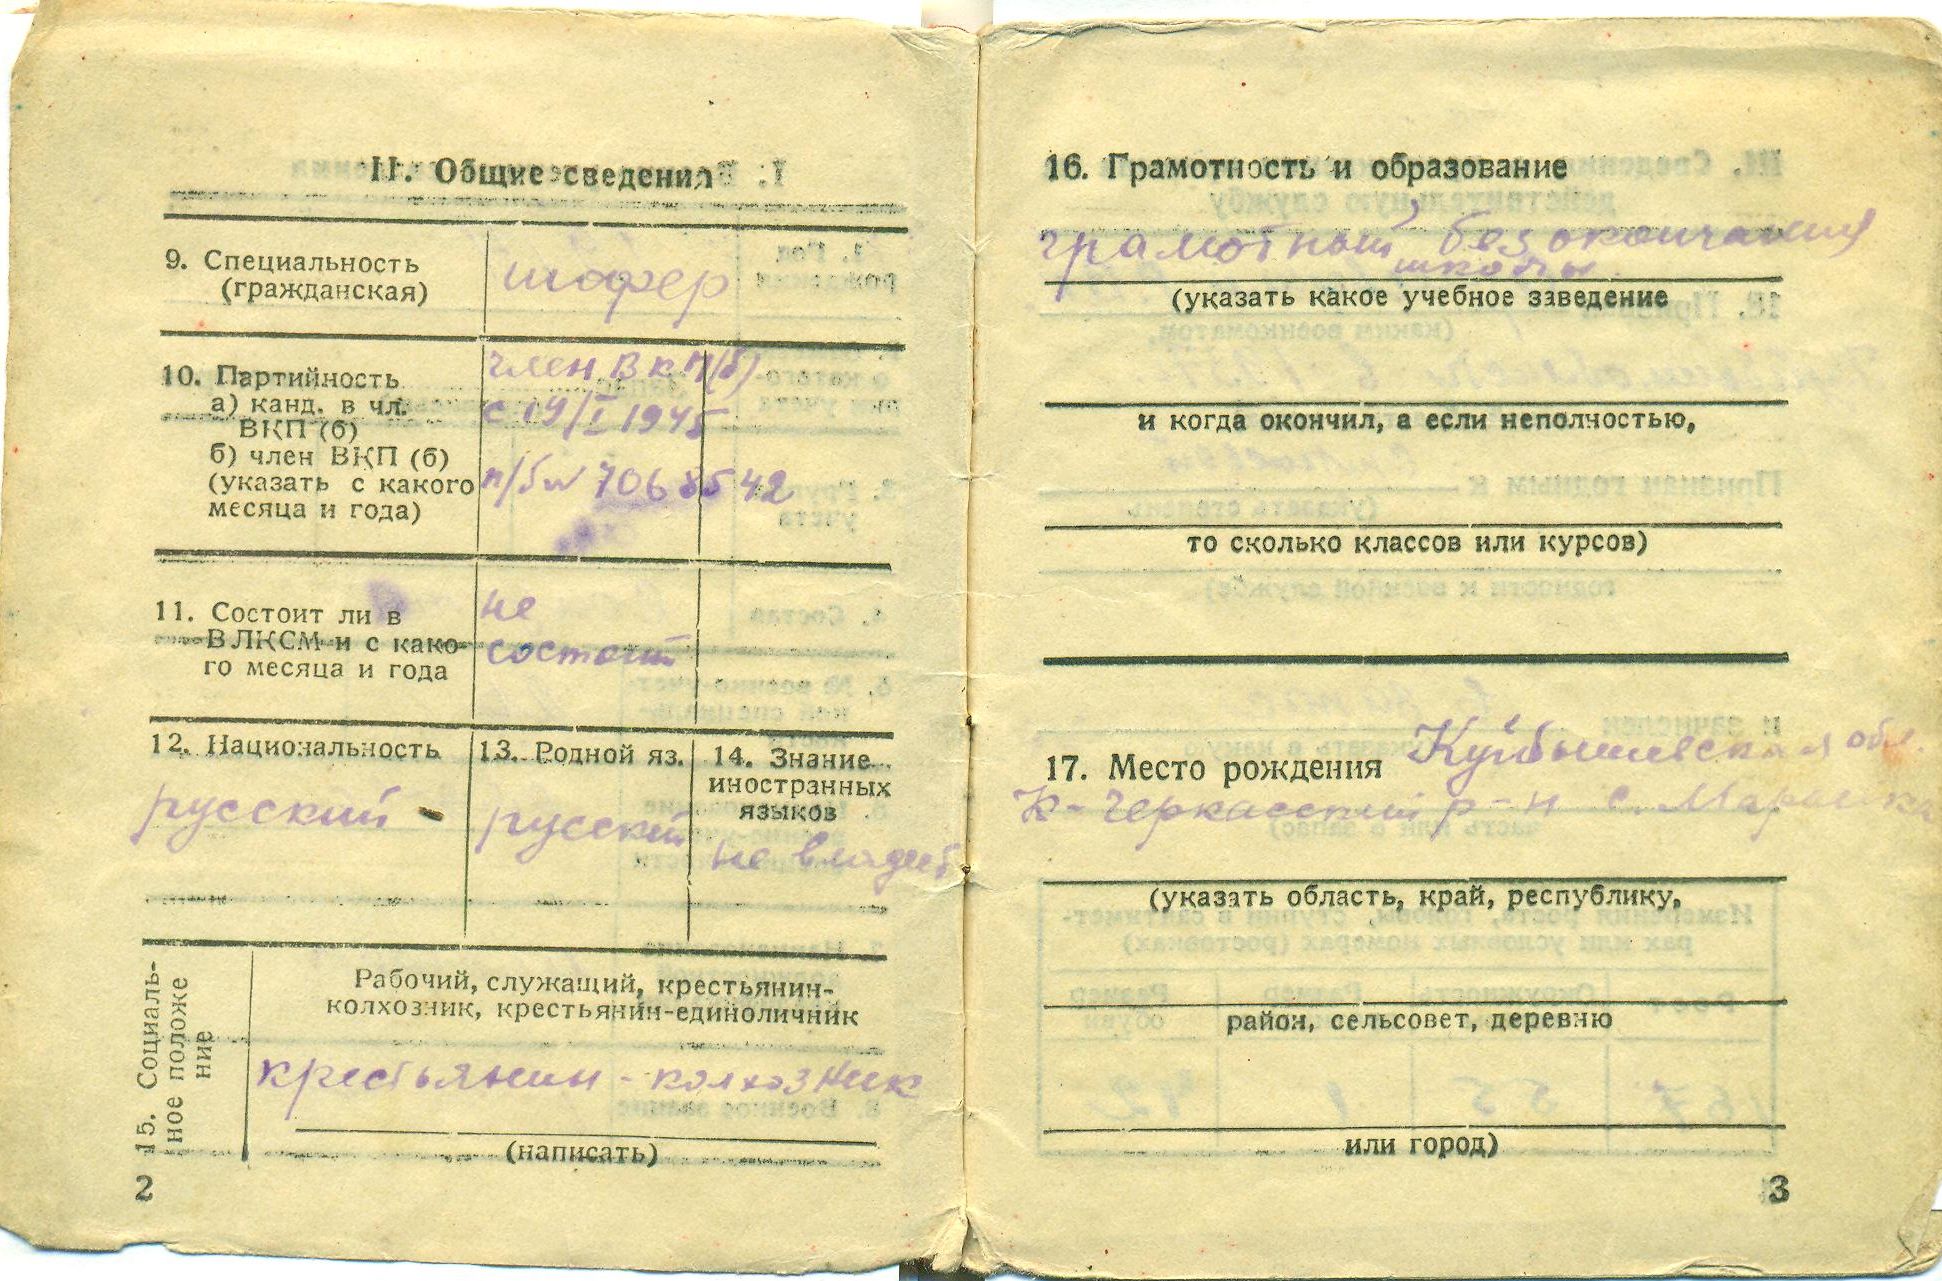 II. Общие сведения
9. Специальность
(гражданская)
шофер
10. Партийность
а) канд. в чл.
ВКП (б)
б) член ВКП (б)
(указать с какого
месяца и года)
член ВКП/б/
с 19/I 1945
п/б № 7068542
11. Состоит ли в
ВЛКСМ и с како-
го месяца и года
не
состоит
12. Национальность
русский -
13. Родной яз.
русский
14. Знание
иностранных
языков
не владеет
15. Социаль-
ное положе
ние
Рабочий, служащий, крестьянин-
колхозник, крестьянин-единоличник
крестьянин - колхозник
(написать)
2
16. Грамотность и образование
грамотный без окончания
школы.
(указать какое учебное заведение
и когда окончил, а если неполностью,
то сколько классов или курсов)
17. Место рождения Куйбышевская обл.
К-Черкасский р-н с.
(указать область, край, республику,
район, сельсовет, деревню
или город)
3